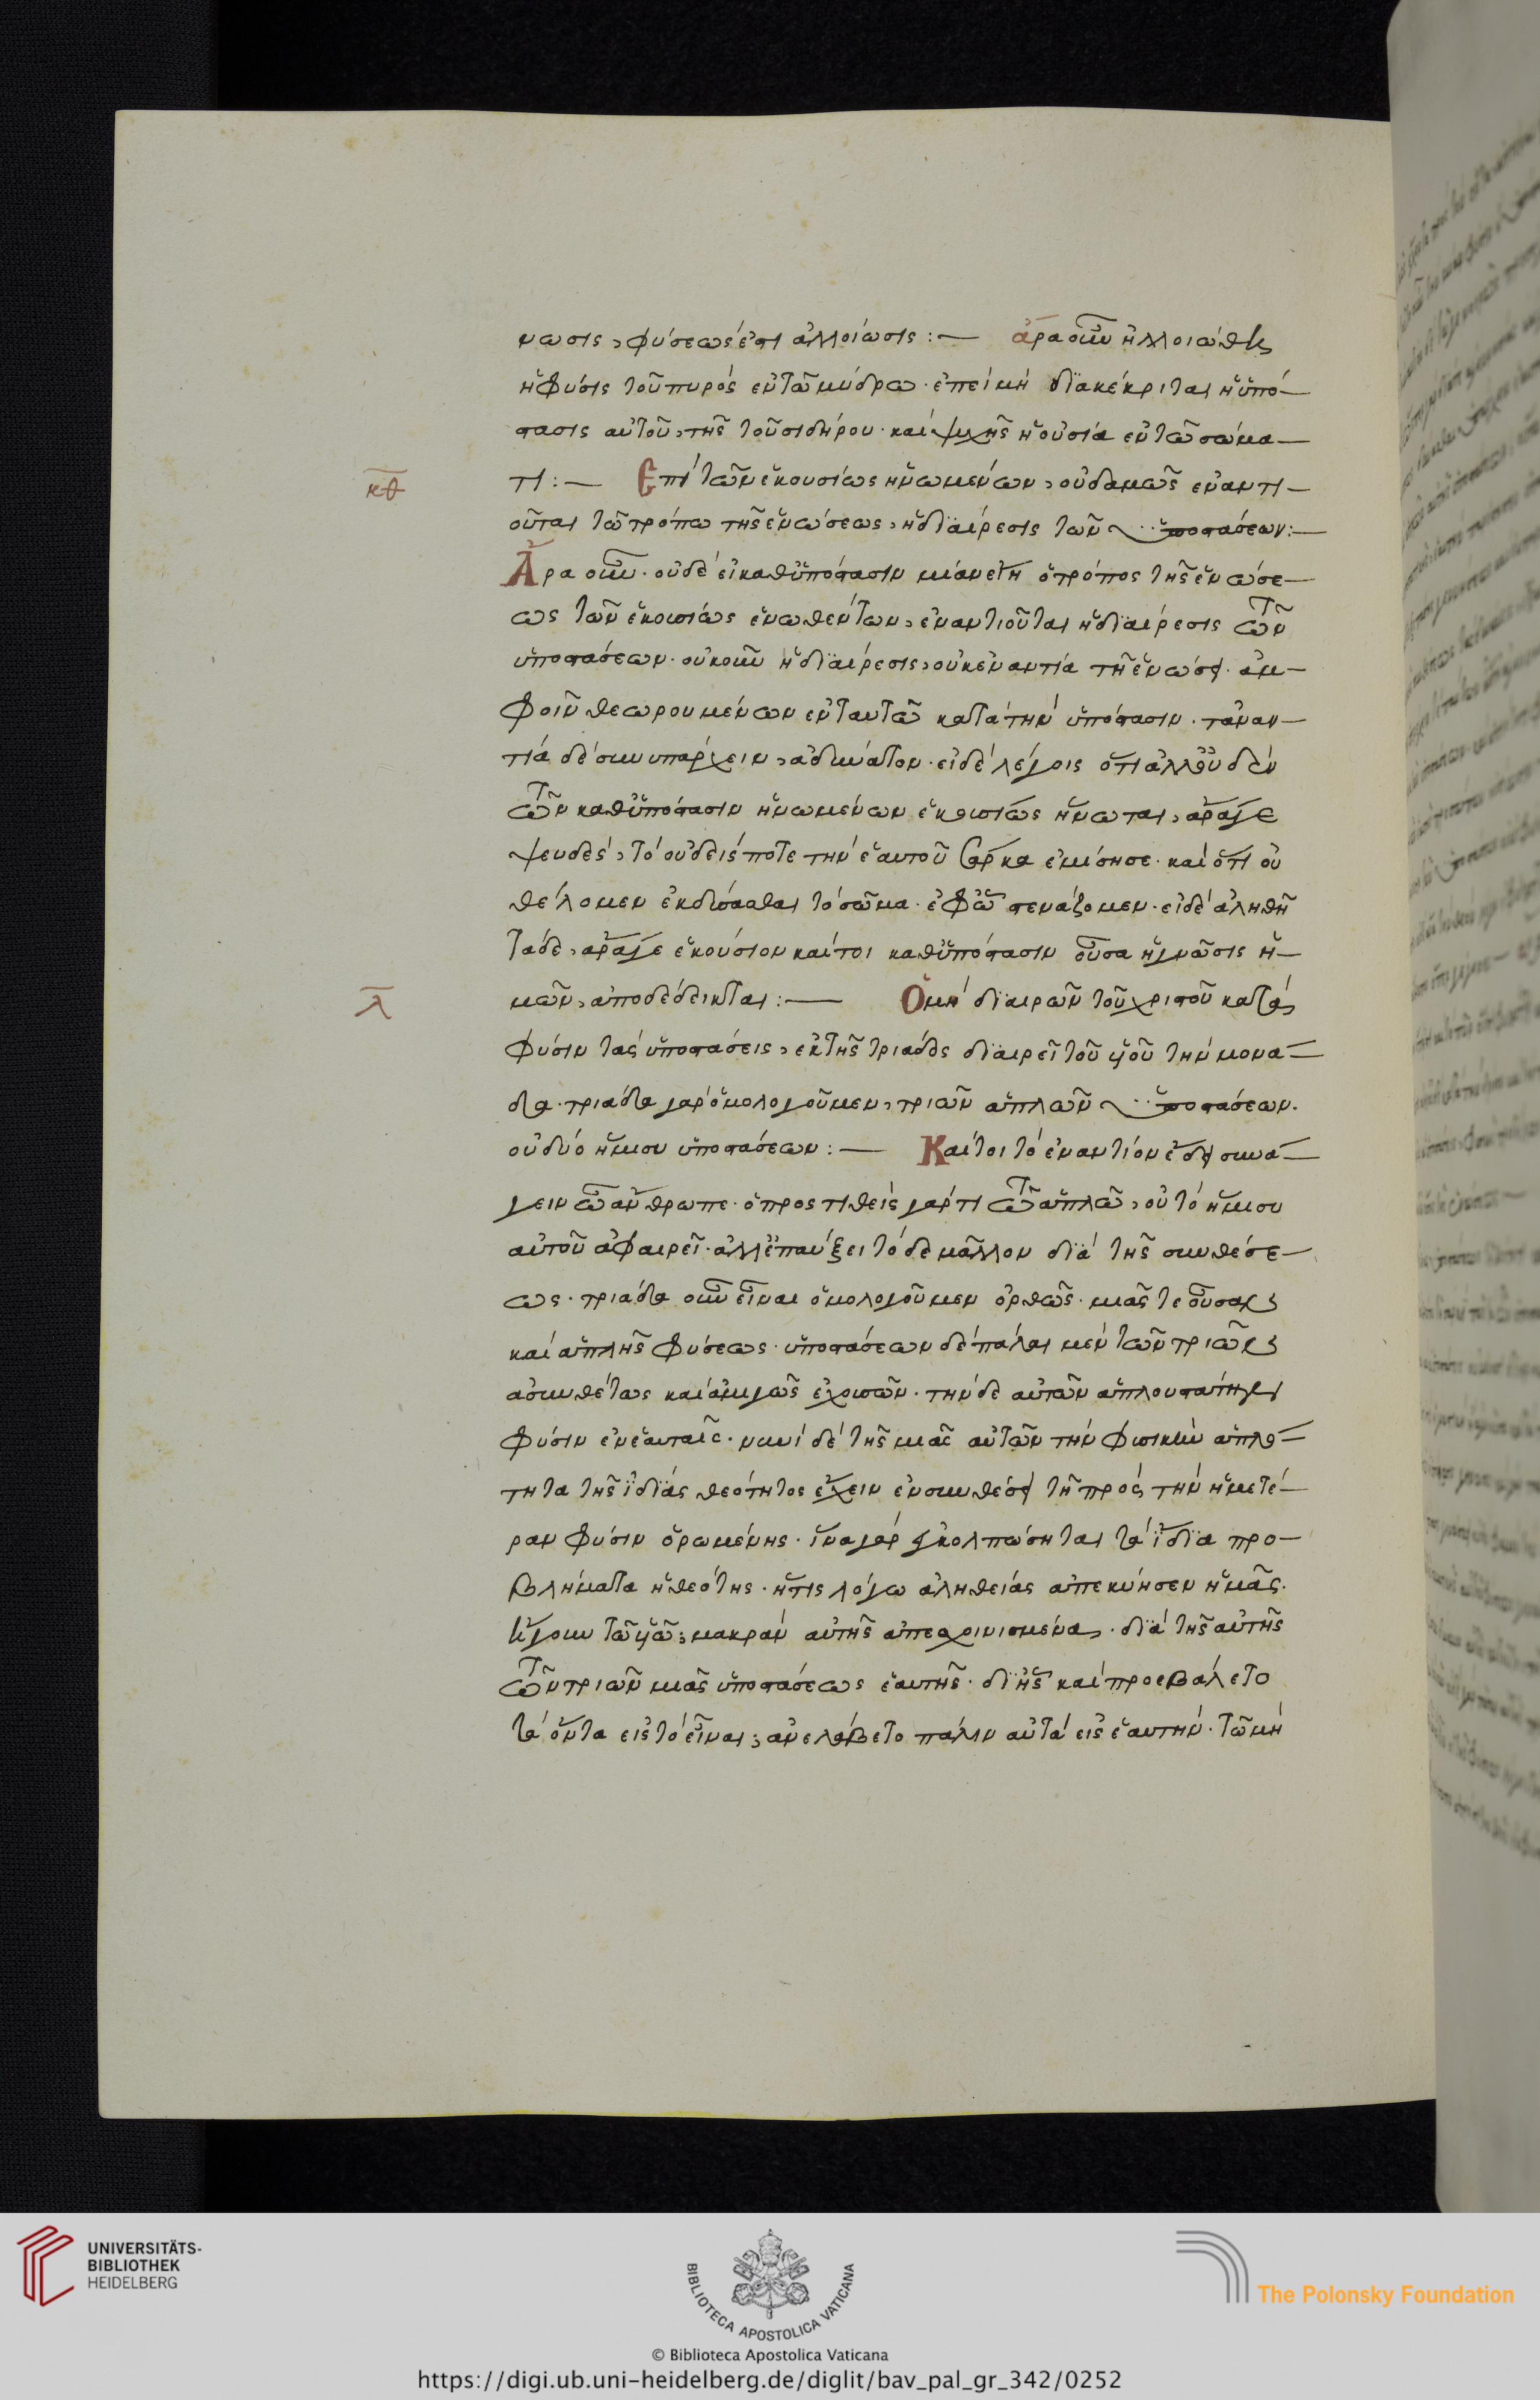 νωσις, φύσεως ἐστὶ ἀλλοίωσις :— ἆρα οὖν ἠλλοιώθη
ἡ φύσις τοῦ πυρὸς ἐν τῶ μύδρω· ἐπεὶ μὴ διακέκριται ἡ ὑπό-
στασις αὐτοῦ, τῆς τοῦ σιδήρου· καὶ ψυχῆς ἡ οὐσία ἐν τῶ σώμα-
κθ τι :— Ἐπὶ τῶν ἑκουσίως ἡνωμένων, οὐδαμῶς ἐναντι-
οῦται τῶ τρόπω τῆς ἑνώσεως, ἡ διαίρεσις τῶν ὑποστάσεων :—
Ἆρα οὖν· οὐδὲ εἰ καθ' ὑπόστασιν μίαν εἴη ὁ τρόπος τῆς ἑνώσε-
ως τῶν ἑκουσίως ἑνωθέντων, ἐναντιοῦται ἡ διαίρεσις τῶν
ὑποστάσεων· οὐκοῦν ἡ διαίρεσις, οὐκ ἐναντία τῆ ἑνώσει· ἀμ-
φοῖν θεωρουμένων ἐν ταυτῶ κατὰ τὴν ὑπόστασιν· τἀναν-
τία δὲ συνυπάρχειν, ἀδύνατον· εἰ δὲ λέγοις ὅτι ἀλλ' οὐδὲν
τῶν καθ' ὑπόστασιν ἡνωμένων ἑκουσίως ἥνωται, ἆρά γε
ψευδὲς, τὸ οὐδείς ποτε τὴν ἑαυτοῦ σάρκα ἐμίσησε· καὶ ὅτι οὐ
θέλομεν ἐκδύσασθαι τὸ σῶμα· ἐφ' ᾧ στενάζομεν· εἰ δὲ ἀληθῆ
τάδε, ἆρά γε ἑκούσιον καίτοι καθ' ὑπόστασιν οὖσα ἡ γνῶσις ἡ-
λ μῶν, ἀποδέδεικται :— Ὁ μὴ διαιρῶν τοῦ χριστοῦ κατὰ
φύσιν τὰς ὑποστάσεις, ἐκ τῆς τριάδος διαιρεῖ τοῦ υἱοῦ τὴν μονά-
δα· τριάδα γὰρ ὁμολογοῦμεν, τριῶν ἁπλῶν ὑποστάσεων·
οὐ δύο ἥμισυ ὑποστάσεων :— Καίτοι τὸ ἐναντίον ἔδει συνά-
γειν ὦ ἄνθρωπε· ὁ προστιθεὶς γάρ τι τῶ ἁπλῶ, οὐ τὸ ἥμισυ
αὐτοῦ ἀφαιρεῖ· ἀλλ' ἐπαύξει τόδε μᾶλλον διὰ τῆς συνθέσε-
ως· τριάδα οὖν εἶναι ὁμολογοῦμεν ὀρθῶς· μιᾶς τε οὖσαν
καὶ ἁπλῆς φύσεως· ὑποστάσεων δὲ πάλαι μὲν τῶν τριῶν
ἀσυνθέτως καὶ ἀμιγῶς ἐχουσῶν· τὴν δὲ αὐτῶν ἁπλουστάτην
φύσιν ἐν ἑαυταῖς· νυνὶ δὲ τῆς μιᾶς αὐτῶν τὴν φυσικὴν ἁπλό-
τητα τῆς ἰδίας θεότητος ἔχειν ἐν συνθέσει τῆ πρὸς τὴν ἡμετέ-
ραν φύσιν ὁρωμένης· ἵνα γὰρ ἐγκολπώσηται τὰ ἴδια προ-
βλήματα ἡ θεότης· ἥτις λόγω ἀληθείας ἀπεκύησεν ἡμᾶς·
ἤγουν τῶ υἱῶ, μακρὰν αὐτῆς ἀπεσχοινισμένα, διὰ τῆς αὐτῆς
τῶν τριῶν μιᾶς ὑποστάσεως ἑαυτῆς· δι' ἧς καὶ προεβάλετο
τὰ ὄντα εἰς τὸ εἶναι, ἀνελάβετο πάλιν αὐτὰ εἰς ἑαυτήν· τῶ μὴ
UNIVERSITÄTS-
BIBLIOTHEK
HEIDELBERG
BIBLIOTECA APOSTOLICA VATICANA
The Polonsky Foundation
© Biblioteca Apostolica Vaticana
https://digi.ub.uni-heidelberg.de/diglit/bav_pal_gr_342/0252